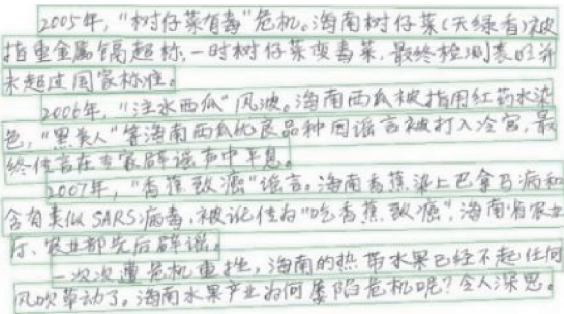 2005年，“树仔菜有毒”危机。海南树仔菜（天绿香）被
指重金属镉超标，一时树仔菜变毒菜，最终检测表明并
未超过国家标准。
2006年，“注水西瓜”风波。海南西瓜被指用红药水染
色，“黑美人”等海南西瓜优良品种因谣言被打入冷宫，最
终传言在专家辟谣声中平息。
2007年，“香蕉致癌”谣言。海南香蕉染上巴拿马病和
含有类似SARS病毒，被讹传为“吃香蕉致癌”，海南省农业
厅、农业部先后辟谣。
一次次遭危机重挫，海南的热带水果已经不起任何
风吹草动了。海南水果产业为何屡陷危机呢？令人深思。